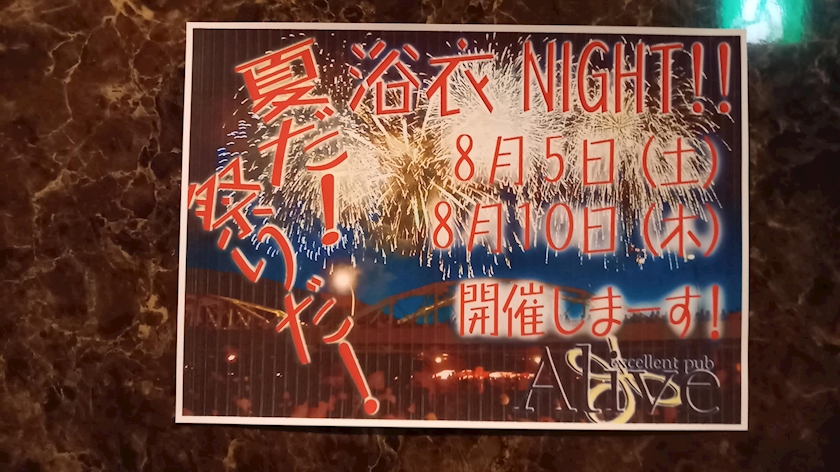 夏だ!
祭りだ!
浴衣 NIGHT!!
8月5日(土)
8月10日(木)
開催しまーす!
excellent pub
Alive